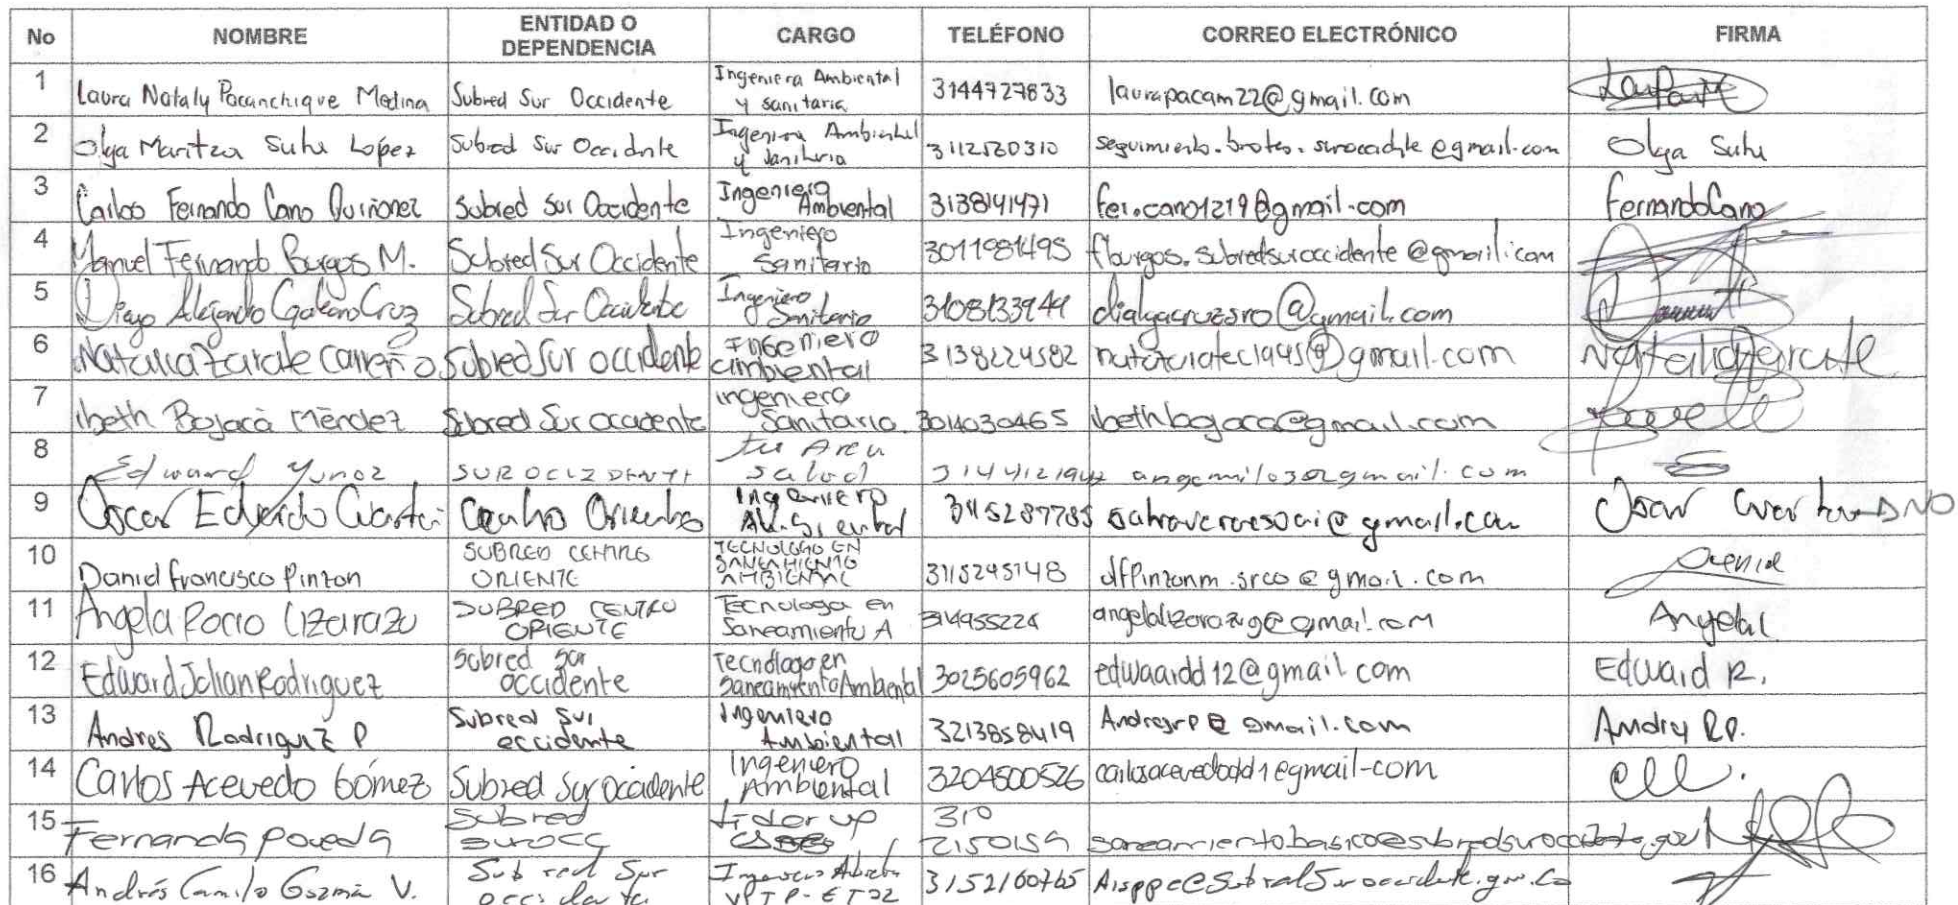 No NOMBRE ENTIDAD O DEPENDENCIA CARGO TELÉFONO CORREO ELECTRÓNICO FIRMA
1 Laura Nataly Pacanchique Medina Subred Sur Occidente Ingeniera Ambiental y sanitaria 3144727833 laurapacam22@gmail.com
2 Olga Maritza Suhu López Subred Sur Occidnte Ingeniera Ambiental y Sanitaria 3112520310 seguimiento.brotes.suroccidnte@gmail.com Olga Suhu
3 Carlos Fernando Cano Quiñonez Subred Sur Occidente Ingeniero Ambiental 3138141471 fer.cano1219@gmail.com Fernando Cano
4 Manuel Fernando Burgos M. Subred Sur Occidente Ingeniero Sanitario 3011981495 fburgos.subredsuroccidente@gmail.com
5 Diego Alejandro Galeano Cruz Subred Sur Occidente Ingeniero Sanitario 3108133944 dialgacruzsro@gmail.com
6 Natalia Zarate Carreño Subred Sur occidente Ingeniero ambiental 3138224582 natazaratec1995@gmail.com Natalia Zarate
7 Ibeth Bojacá Méndez Subred Sur occidente ingeniero Sanitario 3014030465 ibethbojaca@gmail.com
8 Edward Yunoz SUR OCCIDENTE Area salud
9 Oscar Eduardo Cuarta Centro Oriente Ingeniero Ambiental 3115287785 @gmail.com Oscar
10 Daniel Francisco Pinzon SUBRED CENTRO ORIENTE TECNOLOGO EN SANEAMIENTO AMBIENTAL 3115245148 dfpinzonm.srco@gmail.com Daniel
11 Angela Rocio Lizarazo SUBRED CENTRO ORIENTE Tecnologa en Saneamiento A 314955224 angelalizarazog@gmail.com Angela L
12 Edward Julian Rodriguez Subred sur occidente Tecnologo en Saneamiento Ambiental 3025605962 edwaardd12@gmail com Edward R.
13 Andres Rodriguez P Subred Sur occidente Ingeniero Ambiental 3213858419 Andresrp@gmail.com Andres RP.
14 Carlos Acevedo Gómez Subred Sur Occidente Ingeniero Ambiental 3204500526 carlosacevedodd1@gmail-com
15 Fernanda Poveda Subred surocc Lider up 310 2150159 saneamientobasico@subredsuroccidente.gov
16 Andrés Camilo Guzmán V. Subred Sur occidente Ingeniero 3152160765